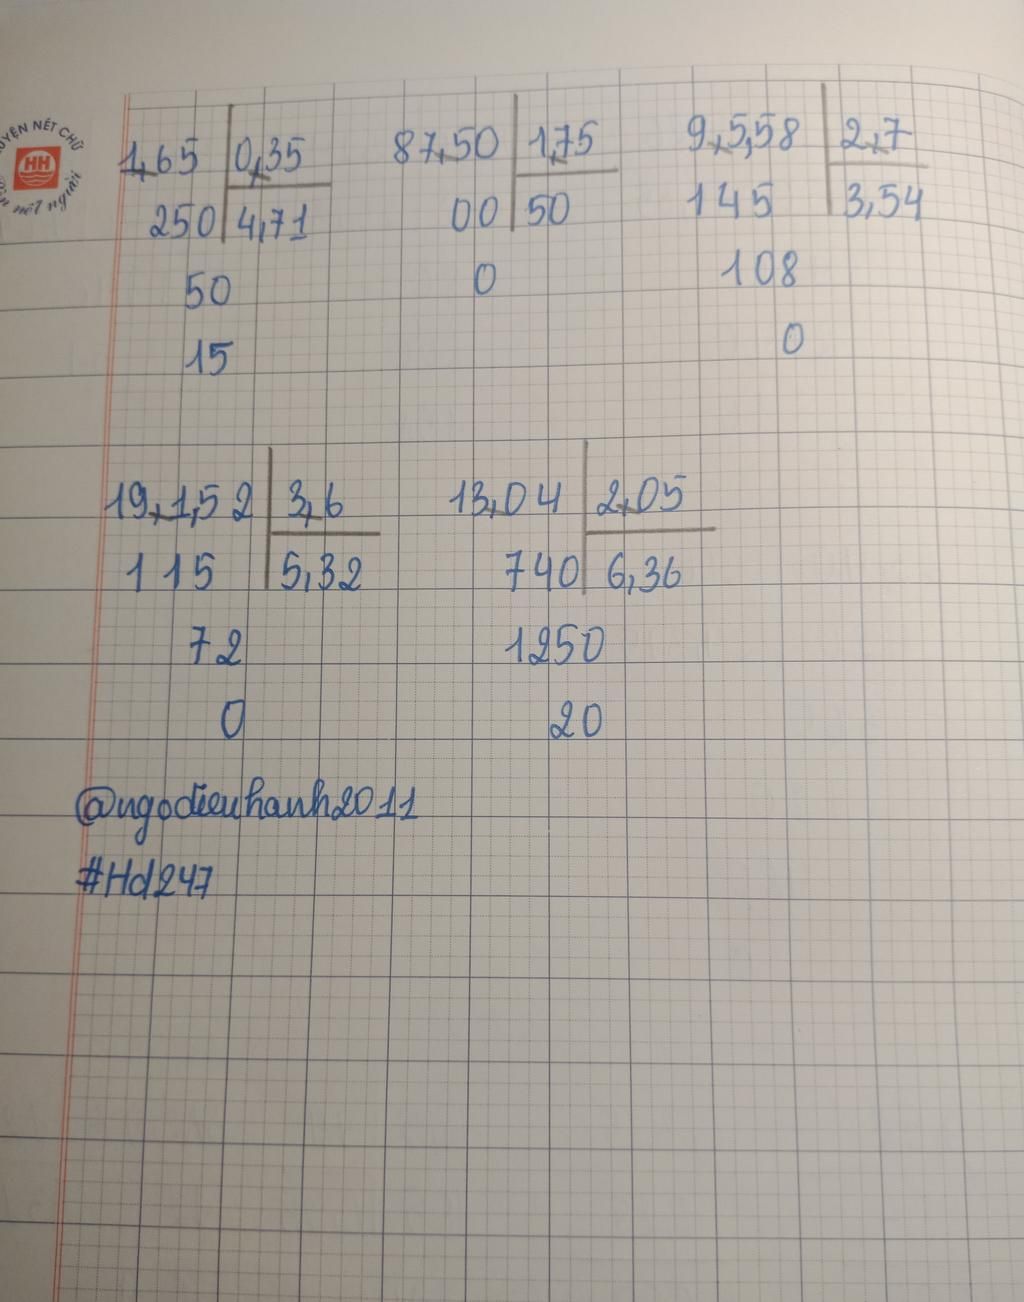 LUYỆN NẾT CHỮ
HH
nết người
1,65 0,35
250 4,71
50
15
87,50 1,75
00 50
0
9,5,58 2,7
145 3,54
108
0
19,1,52 3,6
115 5,32
72
0
13,04 2,05
740 6,36
1250
20
@ngodieuhanh2011
#Hd247